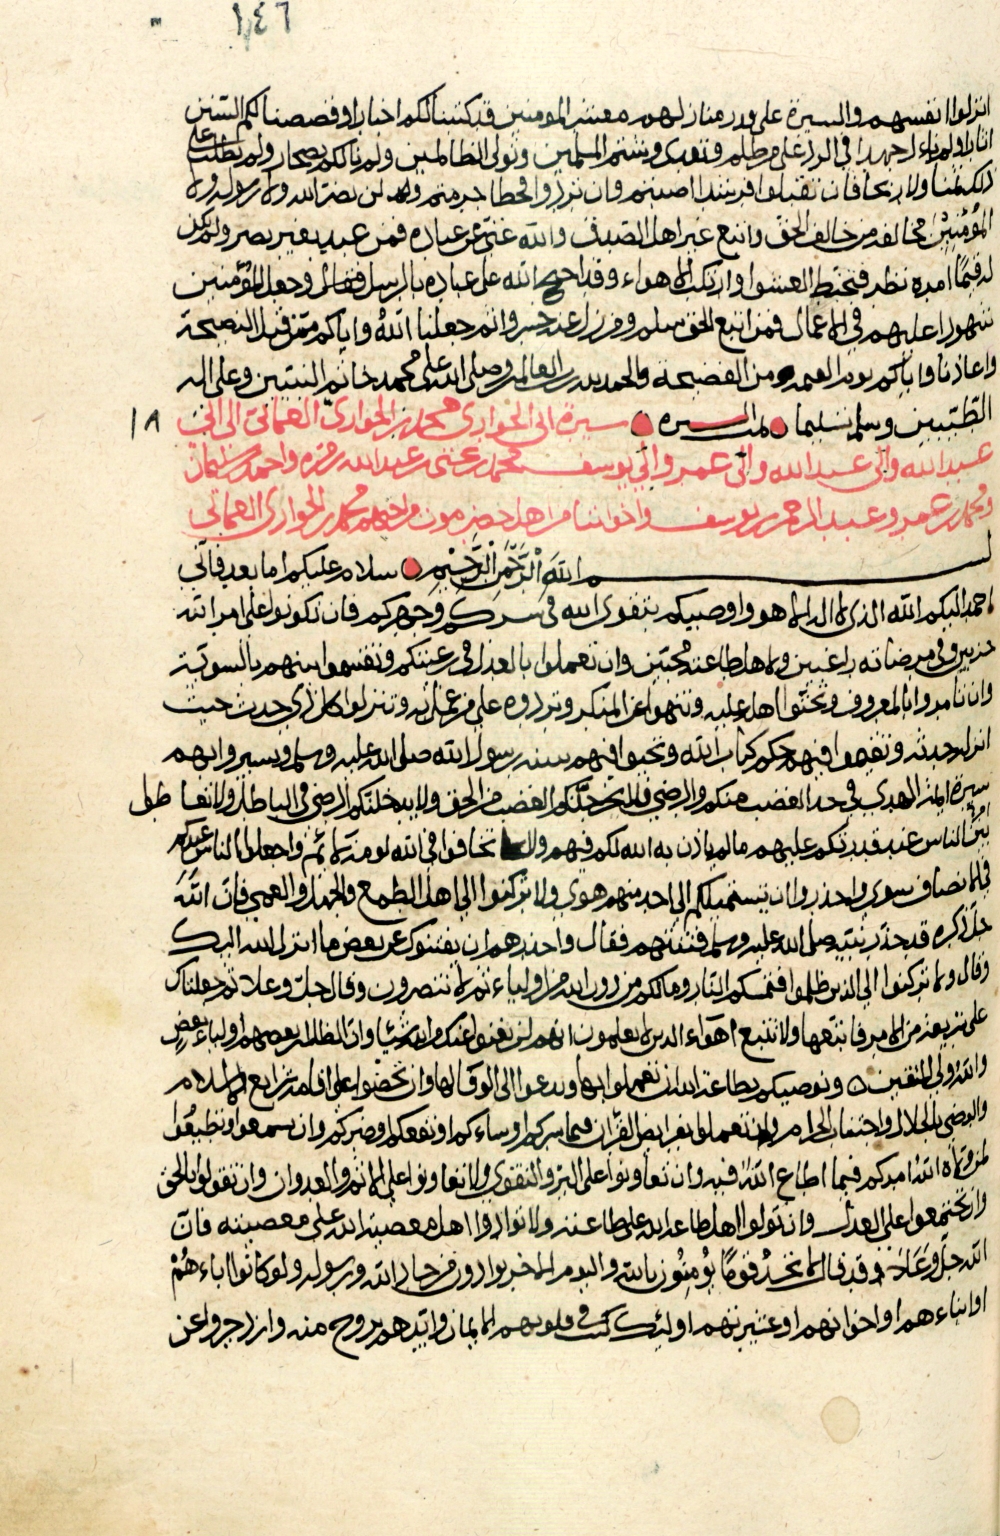 ١٤٦
انزلوا انفسهم والسيرة على قدر منازلهم معشر المومنين قد كتبنا لكم اخبارا وقصصنا لكم السنن
ولم نالوا جهدا في الرد على من ظلم وتعدى وشتم المسلمين وتولى الظالمين ولم نالكم نصحا ولم نطلب على
ذلك ثمنا ولا ربحا فان تقبلوا فرشدا اصبتم وان تردوا فحظا حرمتم ولن يضر الله ولا رسوله ولا
المؤمنين مخالفة من خالف الحق واتبع غير اهل الصدق والله غني عن عباده فمن عمي بغير بصر ولم يكن
له فيما امره نظر فتخبط العشوا وارتكب الاهواء وقد احتج الله على عباده بالرسل فقال وجعل المؤمنين
شهودا عليهم في الاعمال فمن اتبع الحق سلم ومن زل عنه خسر وانتم جعلنا الله واياكم ممن قبل النصيحة
واعاذنا واياكم يوم القيمة من الفضيحة والحمد لله رب العالمين وصلى الله على محمد خاتم النبيين وعلى اله
الطيبين وسلم تسليما تمت السيرة سيرة ابي الحواري محمد بن الحواري العماني الى ابي
١٨
عبدالله وابي عبدالله وابي عمر وابي يوسف محمد بن عبدالله بن واحمد بن سليمان
ومحمد بن عمر وعبد الرحمن بن يوسف واخواننا من اهل حضرموت من اخيهم محمد بن الحواري العماني
بسم الله الرحمن الرحيم سلام عليكم اما بعد فاني
احمد اليكم الله الذي لا اله الا هو واوصيكم بتقوى الله في سركم وجهركم فان تكونوا على امر الله
حدبين وفي مرضاته راغبين ولاهل طاعته محبين وان تعملوا بالعدل في رعيتكم وتقسموا بينهم بالسوية
وان تامروا بالمعروف وتحثوا اهله عليه وتنهوا عن المنكر وتردوه على من عمل به وتنزلوا كل ذي حدث حيث
انزله حدثه وتقيموا فيهم حكم كتاب الله وتحيوا فيهم سنة رسول الله صلى الله عليه وسلم وتسيروا بهم
سيرة ائمة الهدى في حد الغضب منكم والرضى فلا يخرجنكم الغضب من الحق ولا يدخلنكم الرضى في الباطل ولا تعاطول
امر الناس عند قدرتكم عليهم ما لم ياذن به الله لكم فيهم ولا تخافوا في الله لومة لائم واجعلوا الناس عندكم
في الانصاف سوى واحذروا ان يستميلكم الى احد منهم هوى ولا تركنوا الى اهل الطمع والجهل والعمى فان الله
جل ذكره قد حذر نبيه صلى الله عليه وسلم فتنتهم فقال واحذرهم ان يفتنوك عن بعض ما انزل الله اليك
وقال ولا تركنوا الى الذين ظلموا فتمسكم النار وما لكم من دون الله من اولياء ثم لا تنصرون وقال جل وعلا ثم جعلناك
على شريعة من الامر فاتبعها ولا تتبع اهواء الذين لا يعلمون انهم لن يغنوا عنك من الله شيئا وان الظالمين بعضهم اولياء بعض
والله ولي المتقين ونوصيكم بطاعة الله ان تعملوا بها وتدعوا الى الوفا لها وان تحضوا على اقامة شرايع الاسلام
والرضى بالحلال واجتناب الحرام وان تعملوا بفرايض القران فيما سركم او ساءكم او نفعكم وضركم وان تسمعوا وتطيعوا
لمن ولاه الله امركم فيما اطاع الله فيه وان تعاونوا على البر والتقوى ولا تعاونوا على الاثم والعدوان وان تقولوا بالحق
وان تجتمعوا على العدل وان تولوا اهل طاعة الله على طاعته ولا توادوا اهل معصية الله على معصيته فان
الله جل وعلا قد قال لا تجد قوما يؤمنون بالله واليوم الاخر يوادون من حاد الله ورسوله ولو كانوا اباءهم
او ابناءهم او اخوانهم او عشيرتهم اولئك كتب في قلوبهم الايمان وايدهم بروح منه وازدجروا عن